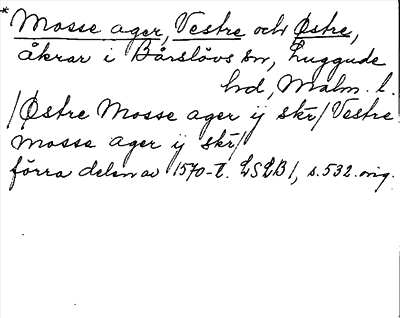 * Mosse ager, Vestre och Østre,
åkrar i Bårslövs sn, Luggude
hd, Malm. l.
/Østre Mosse ager ij skr/ Vestre
Mosse ager ij skr/
förra delen av 1570-t. LSLB 1, s. 532. orig.